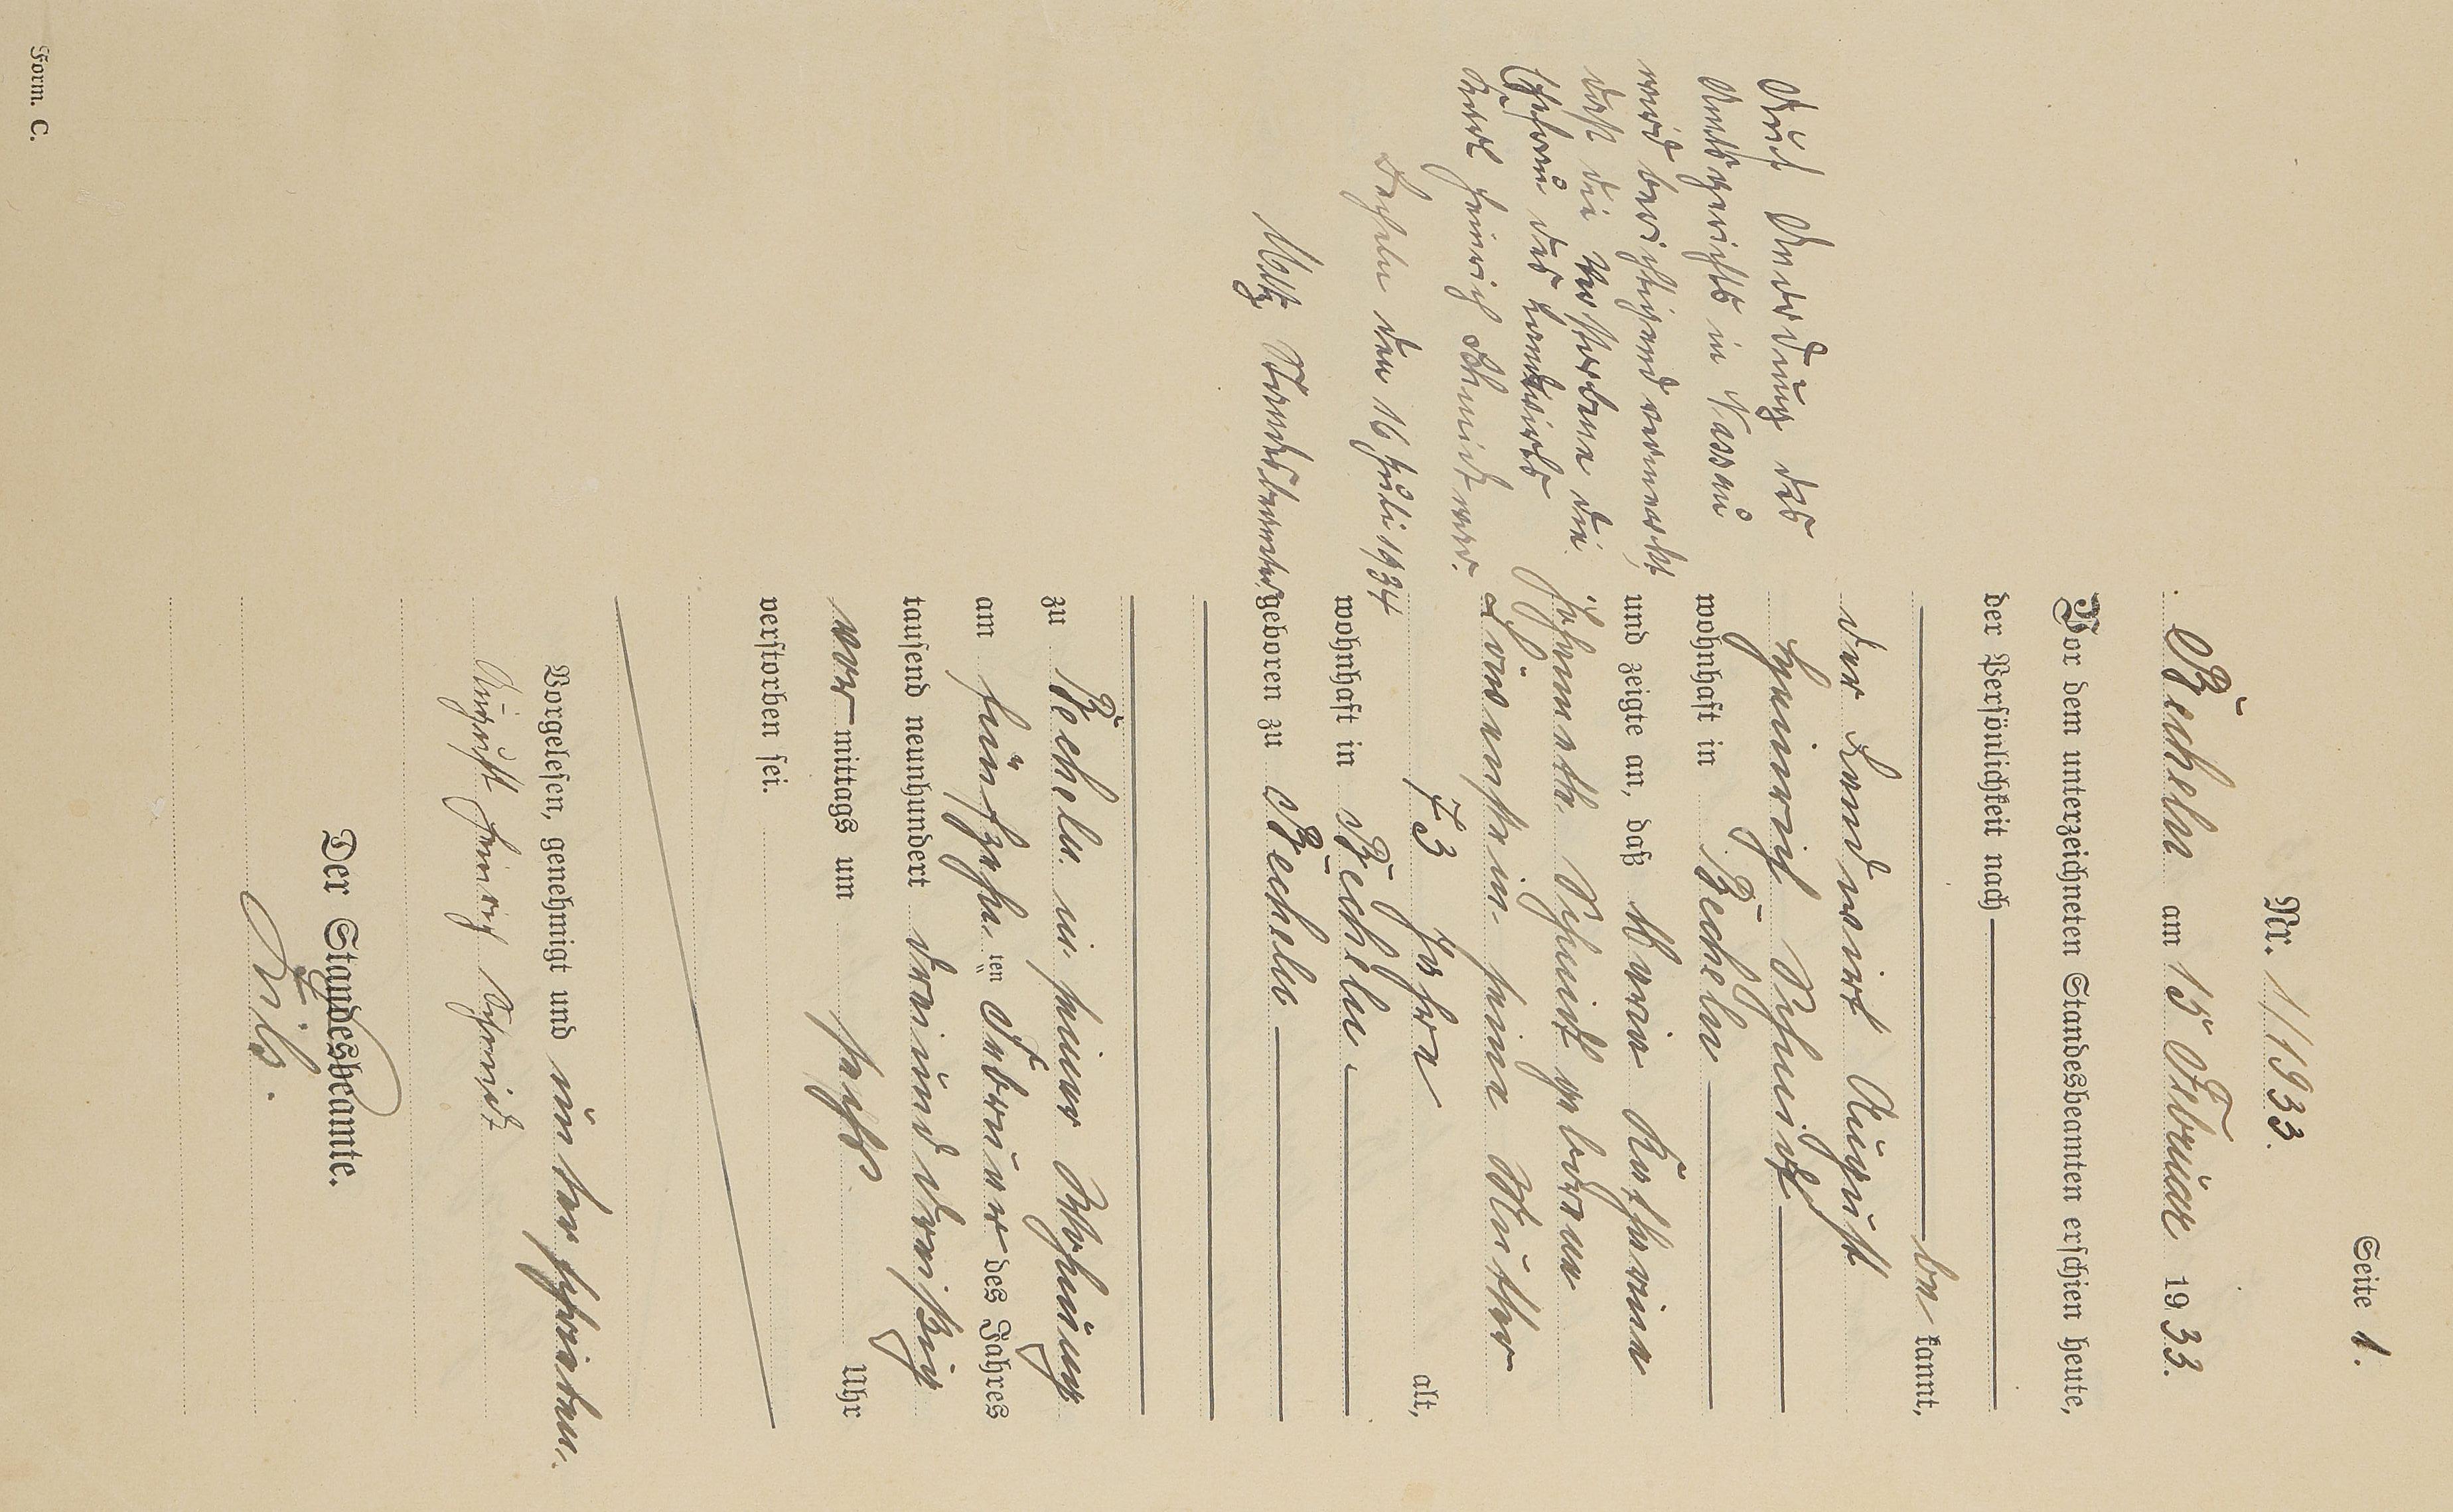 Seite 1.
Nr. 1/1933.
Becheln am 15 Februar 1933.
Vor dem unterzeichneten Standesbeamten erschien heute,
der Persönlichkeit nach
be kannt,
der Landwirt August
Heinrich Schmidt
wohnhaft in Becheln
und zeigte an, daß Maria Katharina
Johannetta Schmidt geborene
seine Mutter
73 Jahre alt,
wohnhaft in Becheln
geboren zu Becheln
zu Becheln in seiner Wohnung
am fünfzehn ten Februar des Jahres
tausend neunhundert dreiunddreißig
vor mittags um sechs Uhr
verstorben sei.
Vorgelesen, genehmigt und unterschrieben.
August Heinrich Schmidt
Der Standesbeamte.
Auf Anordnung des
Amtsgerichts in Nassau
wird berichtigend vermerkt
daß die Verstorbene die
Ehefrau des Landwirts
Karl Heinrich Schmidt war.
Becheln den 16 Juli 1934
Standesbeamter
Form. C.